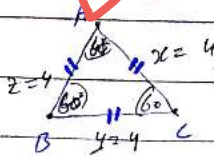 A
60°
x = 4
z = 4
60°
60
B
y = 4
C